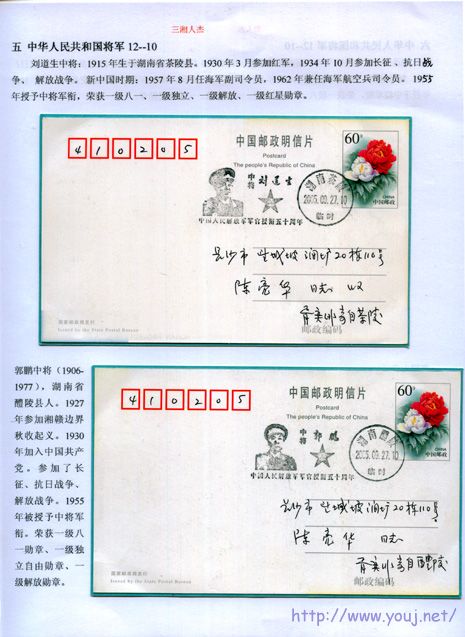 三湘人杰
五 中华人民共和国将军 12--10
刘道生中将：1915年生于湖南省茶陵县。1930年3月参加红军，1934年10月参加长征、抗日战
争、 解放战争。 新中国时期：1957年8月任海军副司令员，1962年兼任海军航空兵司令员。1955
年授予中将军衔，荣获一级八一、一级独立、一级解放、一级红星勋章。
410205
中国邮政明信片
Postcard
The people's Republic of China
60
CHINA
中国邮政
中将 刘道生
湖南茶陵
2005.09.27.10
临时
中国人民解放军军官授衔五十周年
长沙市 盐城坡 涧圹20栋110号
陈亮华 同志 收
国家邮政局发行
Issued by the State Postal Bureau
邮政编码
郭鹏中将（1906-
1977），湖南省
醴陵县人。1927
年参加湘赣边界
秋收起义。1930
年加入中国共产
党。参加了长
征、抗日战争、
解放战争。1955
年被授予中将军
衔。荣获一级八
一勋章、一级独
立自由勋章、一
级解放勋章。
410205
中国邮政明信片
Postcard
The people's Republic of China
60
CHINA
中国邮政
中将 郭鹏
湖南醴陵
2005.09.27.10
临时
中国人民解放军军官授衔五十周年
长沙市 盐城坡 涧圹20栋110号
陈亮华 同志
国家邮政局发行
Issued by the State Postal Bureau
邮政编码
http://www.youj.net/